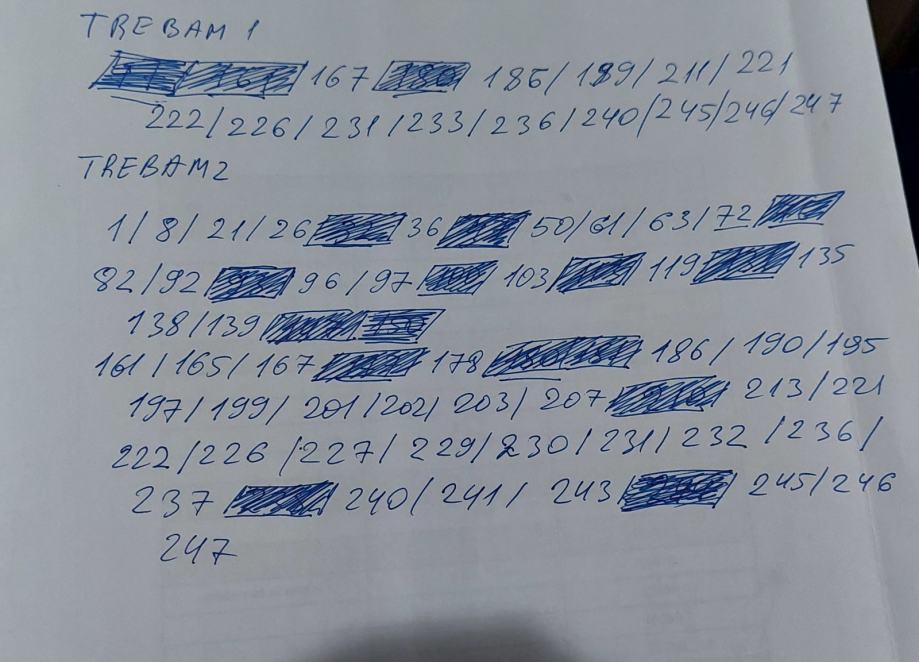 TREBAM 1
167 186/189/211/221
222/226/231/233/236/240/245/246/247
TREBAM 2
1/8/21/26 36 50/61/63/72
82/92 96/97 103 119 135
138/139
161/165/167 178 186/190/195
197/199/201/202/203/207 213/221
222/226/227/229/230/231/232/236/
237 240/241/243 245/246
247